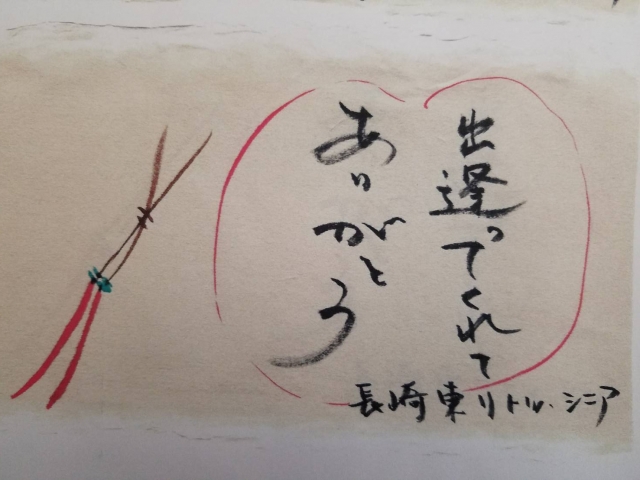 出逢ってくれて
ありがとう
長崎東リトル・シニア